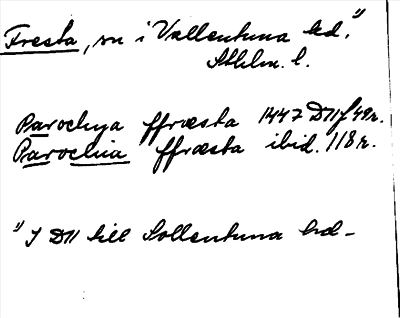 Fresta, sn i Vallentuna hd.¹⁾
Sthlm. l.
Parochya ffræsta 1447 D11 f 49r.
Parochia ffræsta ibid. 118r.
¹⁾ I D11 till Sollentuna hd –